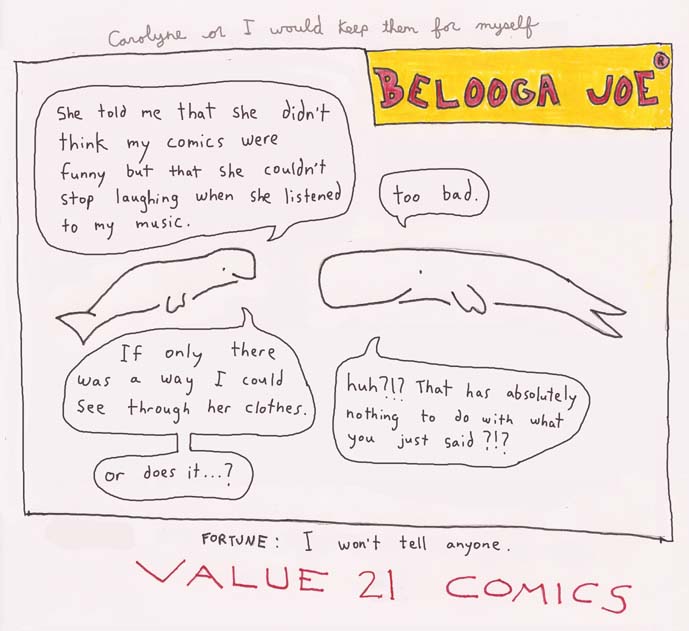 Carolyne or I would keep them for myself
BELOOGA JOE ®
She told me that she didn't
think my comics were
funny but that she couldn't
stop laughing when she listened
to my music.
too bad.
If only there
was a way I could
see through her clothes.
or does it...?
huh?!? That has absolutely
nothing to do with what
you just said ?!?
FORTUNE: I won't tell anyone.
VALUE 21 COMICS